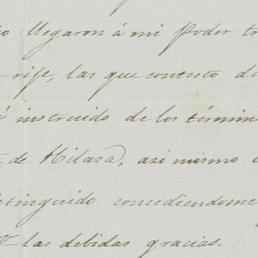 llegaron á mi Poder
las que contesto
instruido de los términ
de Milara, así mismo
tinguido concediendome
las debidas gracias.